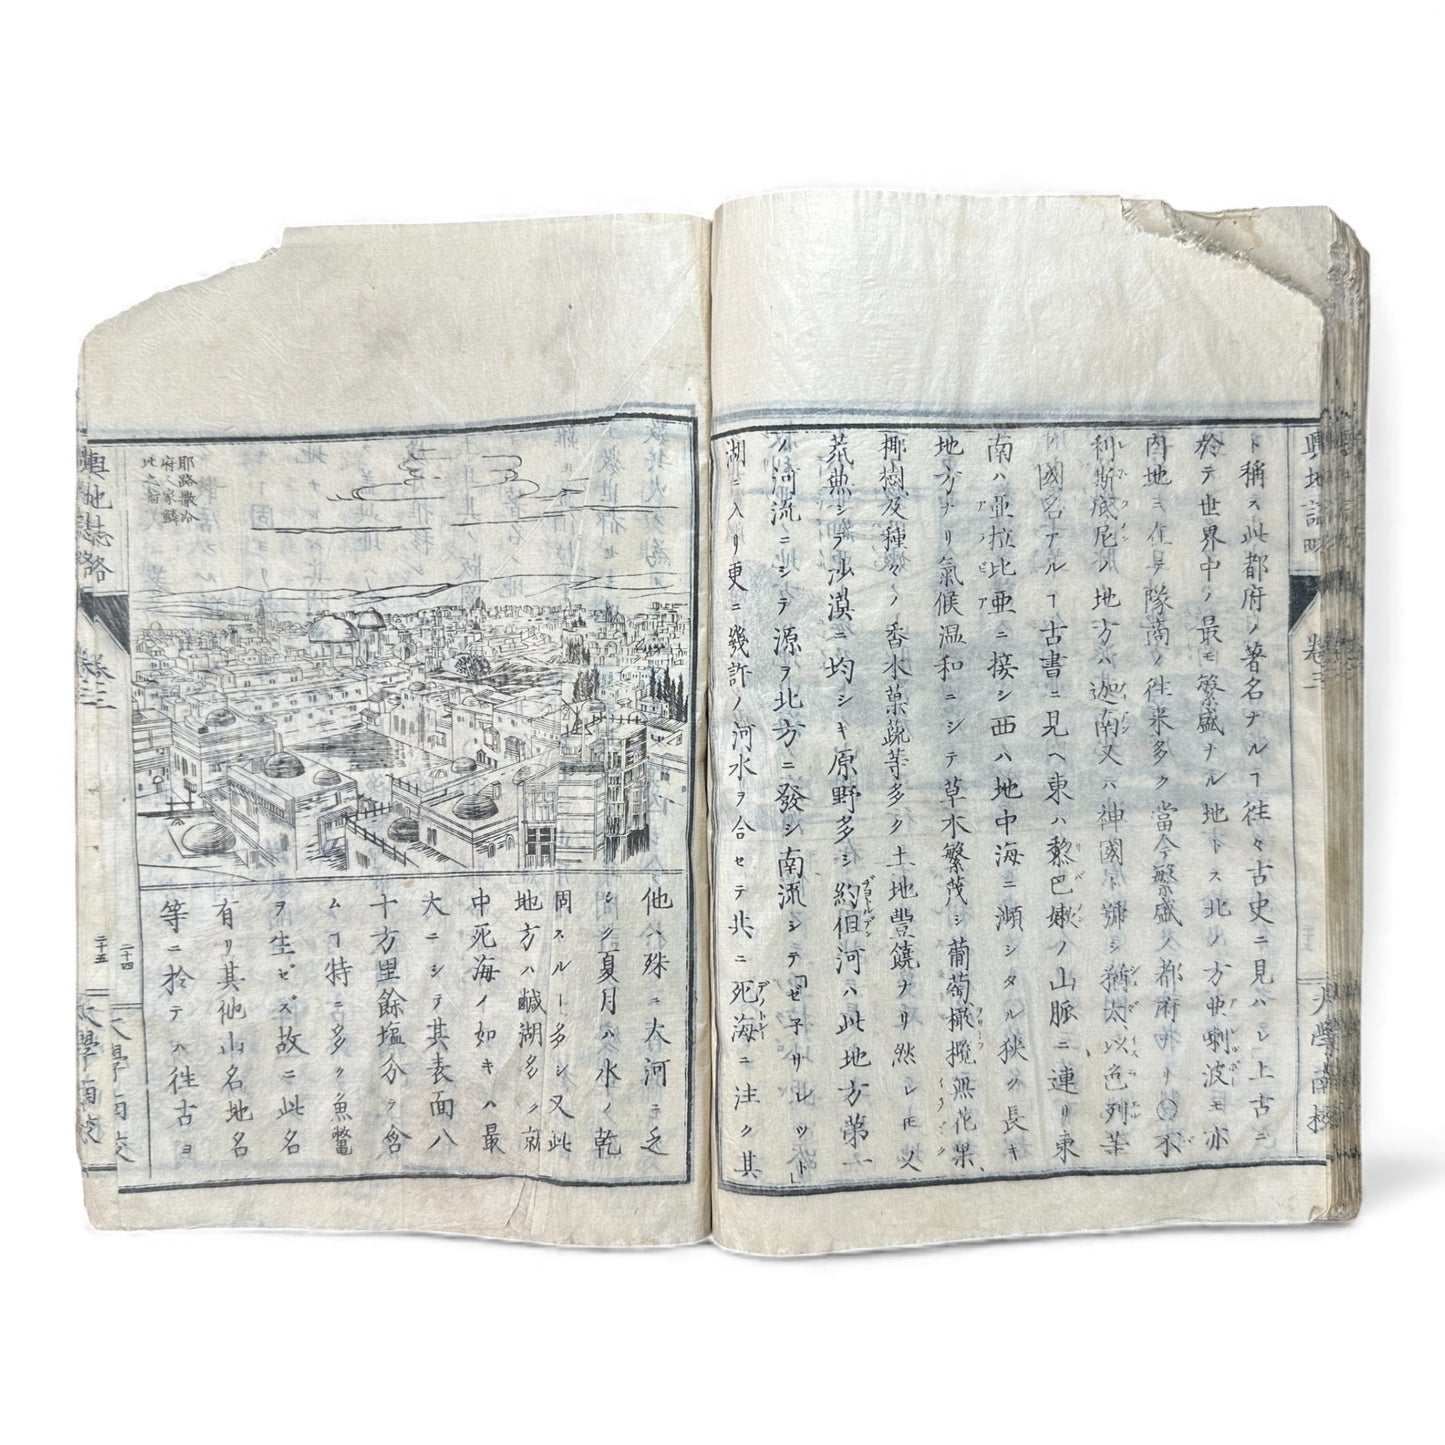 輿地誌略
卷三
大學南校
ト稱ス此都府ノ著名ナルヿ往々古史ニ見ハレ上古ニ
於テ世界中ノ最モ繁盛ナル地トス北ノ方亜喇波モ亦
內地ニ在テ隊商ノ往来多ク當今繁盛ノ都府ナリ〇不
利斯底尼ノ地方ハ迦南又ハ神國ト號シ猶太以色列等
ノ國名アルヿ古書ニ見ヘ東ハ黎巴嫩ノ山脈ニ連リ東
南ハ亜拉比亜ニ接シ西ハ地中海ニ瀕シタル狹ク長キ
地方ナリ氣候温和ニシテ草木繁茂シ葡萄橄欖無花果、
椰樹及種々ノ香木菓蔬等多ク土地豐饒ナリ然レ𪜈又
荒無シテ沙漠ニ均シキ原野多シ約但河ハ此地方第一
ノ河流ニシテ源ヲ北方ニ發シ南流シテ「ゼ子サレット」
湖ニ入リ更ニ幾許ノ河水ヲ合セテ共ニ死海ニ注ク其
耶路撒冷
府人家鱗
比之圖
他ハ殊ニ大河ニテ乏
シク夏月ハ水ノ乾
涸スルー多シ又此
地方ハ鹹湖多ク就
中死海ノ如キハ最
大ニシテ其表面八
十方里餘塩分ヲ含
ムヿ特ニ多ク魚鼈
ヲ生ゼズ故ニ此名
有リ其他山名地名
等ニ於テハ往古ヨ
輿地誌略
卷三
二十四
二十五
大學南校
大學南校